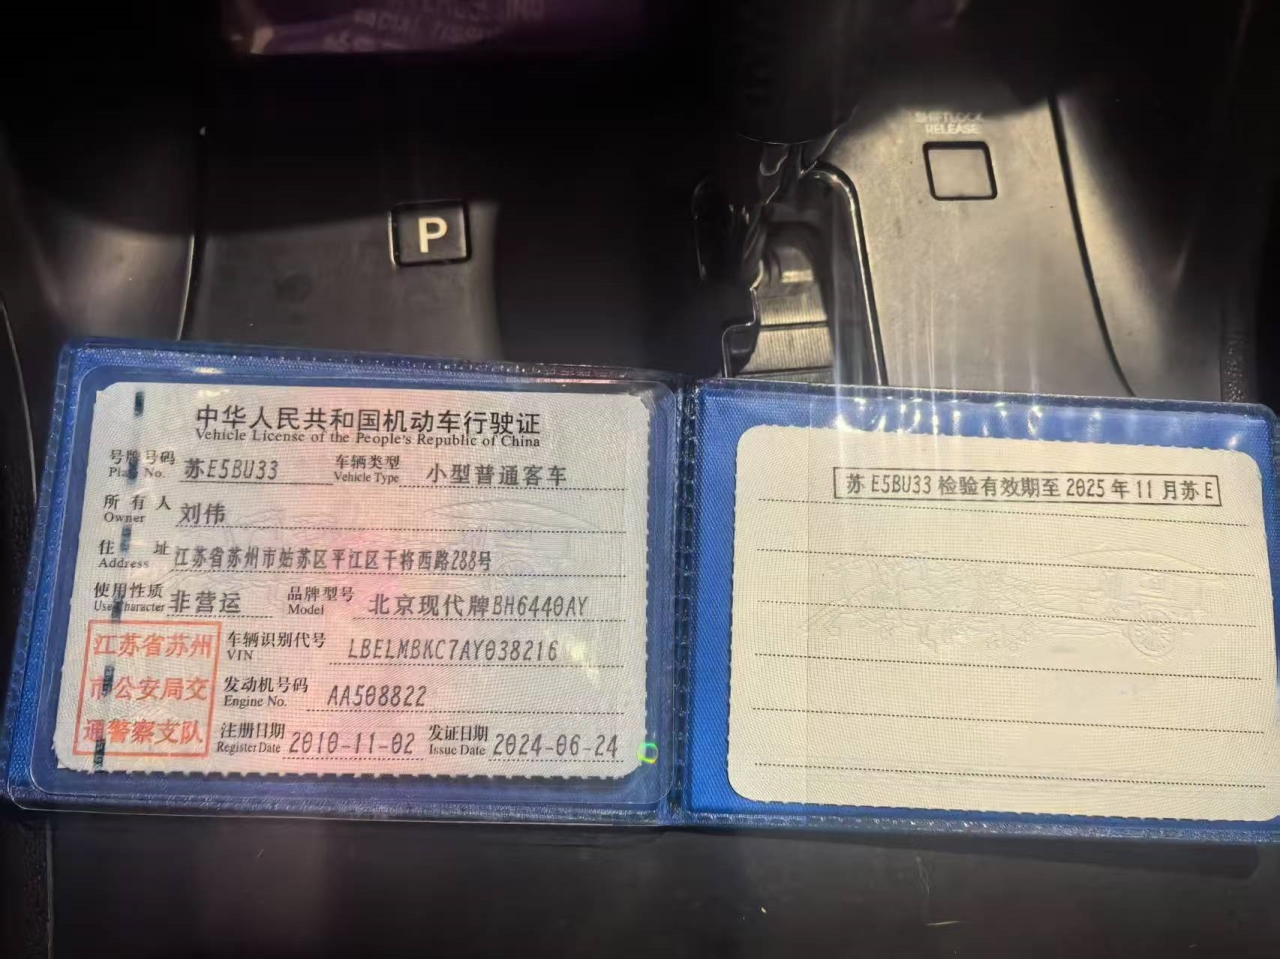 SHIFT LOCK
RELEASE
P
中华人民共和国机动车行驶证
Vehicle License of the People's Republic of China
号牌号码 苏E5BU33 车辆类型 小型普通客车
Plate No. Vehicle Type
所有人 刘伟
Owner
住址 江苏省苏州市姑苏区平江区干将西路288号
Address
使用性质 非营运 品牌型号 北京现代牌BH6440AY
Use Character Model
江苏省苏州
市公安局交
通警察支队
车辆识别代号 LBELMBKC7AY038216
VIN
发动机号码 AA508822
Engine No.
注册日期 2010-11-02 发证日期 2024-06-24
Register Date Issue Date
苏E5BU33检验有效期至2025年11月苏E